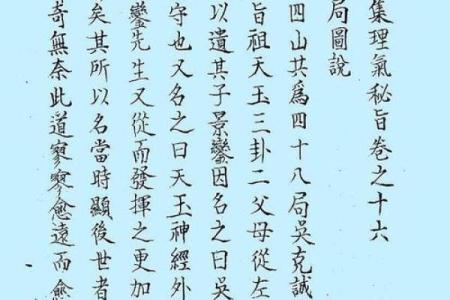 集理氣秘旨卷之十六
局圖說
四山共爲四十八局吳克誠
旨祖天玉三卦二父母從左
以遺其子景鑾因名之曰吳
守也又名之曰天玉神經外
鑾先生又從而發揮之更加
矣其所以名當時顯後世者
無奈此道寥寥愈遠而愈